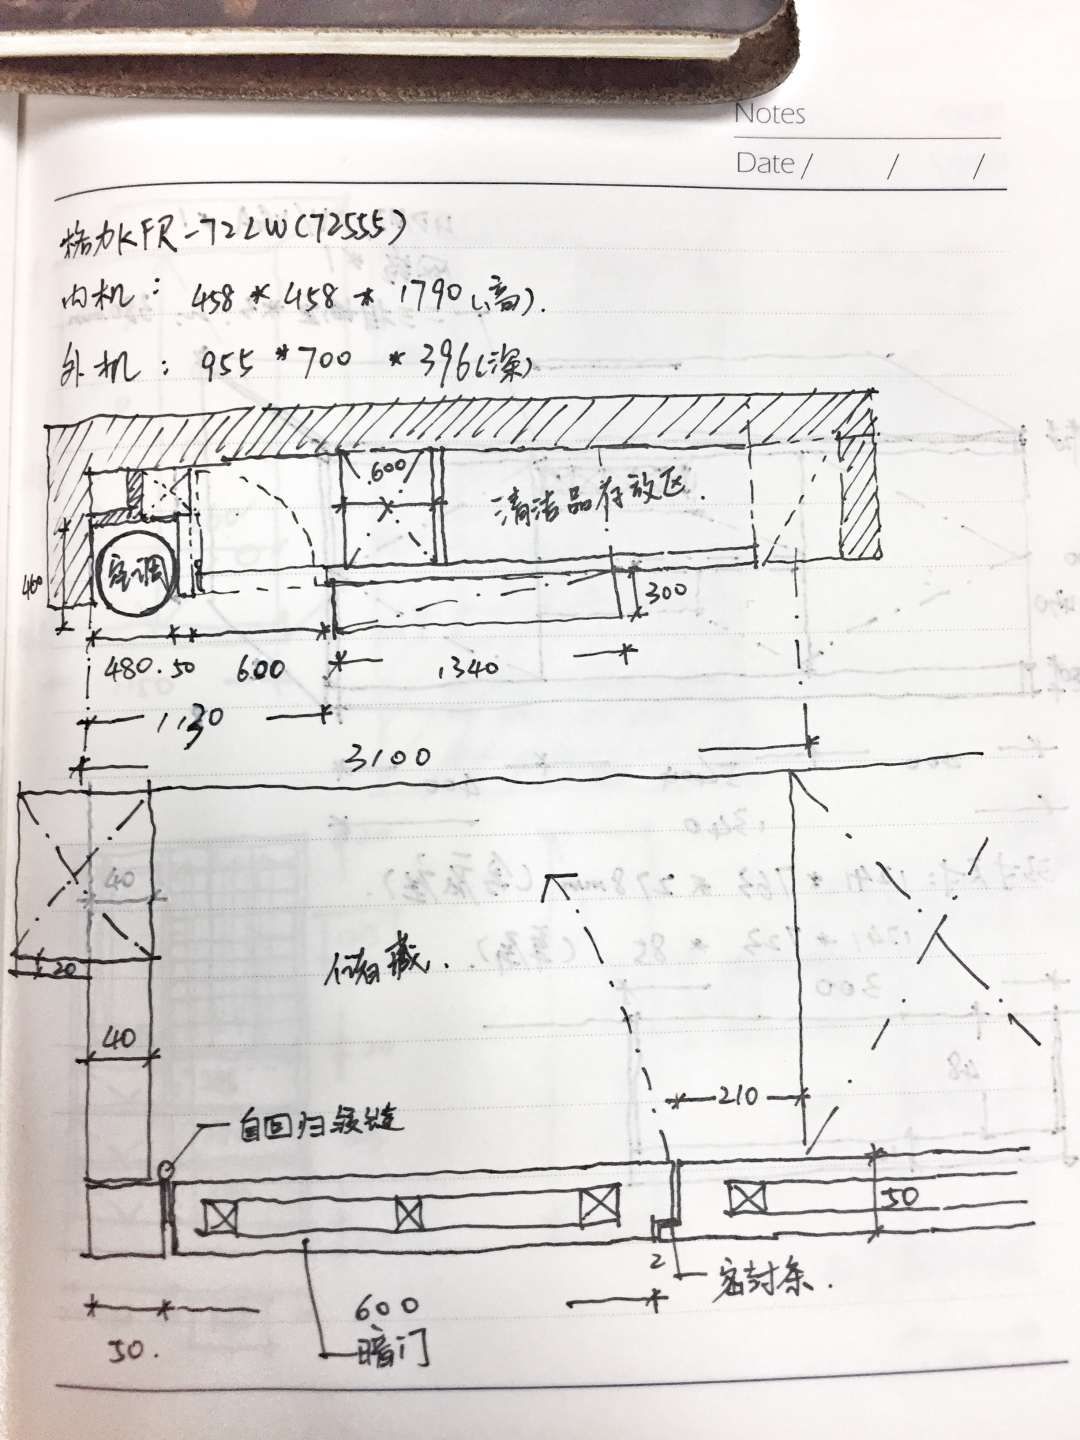 Notes
Date / / /
格力KFR-72LW(72555)
内机: 458*458*1790(高).
外机: 955*700*396(深)
600
清洁品存放区.
空调
460
300
480.50 600 1340
1130
3100
40
20
储藏.
40
210
自回归铰链
50
2
密封条.
600
50.
暗门